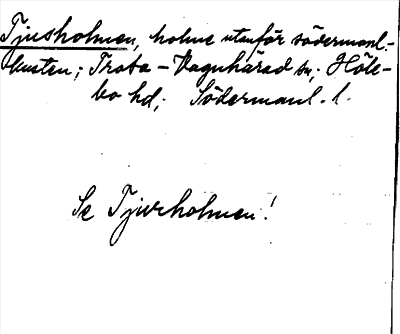 Tjusholmen, holme utanför södermanl.-
kusten; Trosa-Vagnhärad sn; Höle-
bo hd; Södermanl. l.
Se Tjurholmen!